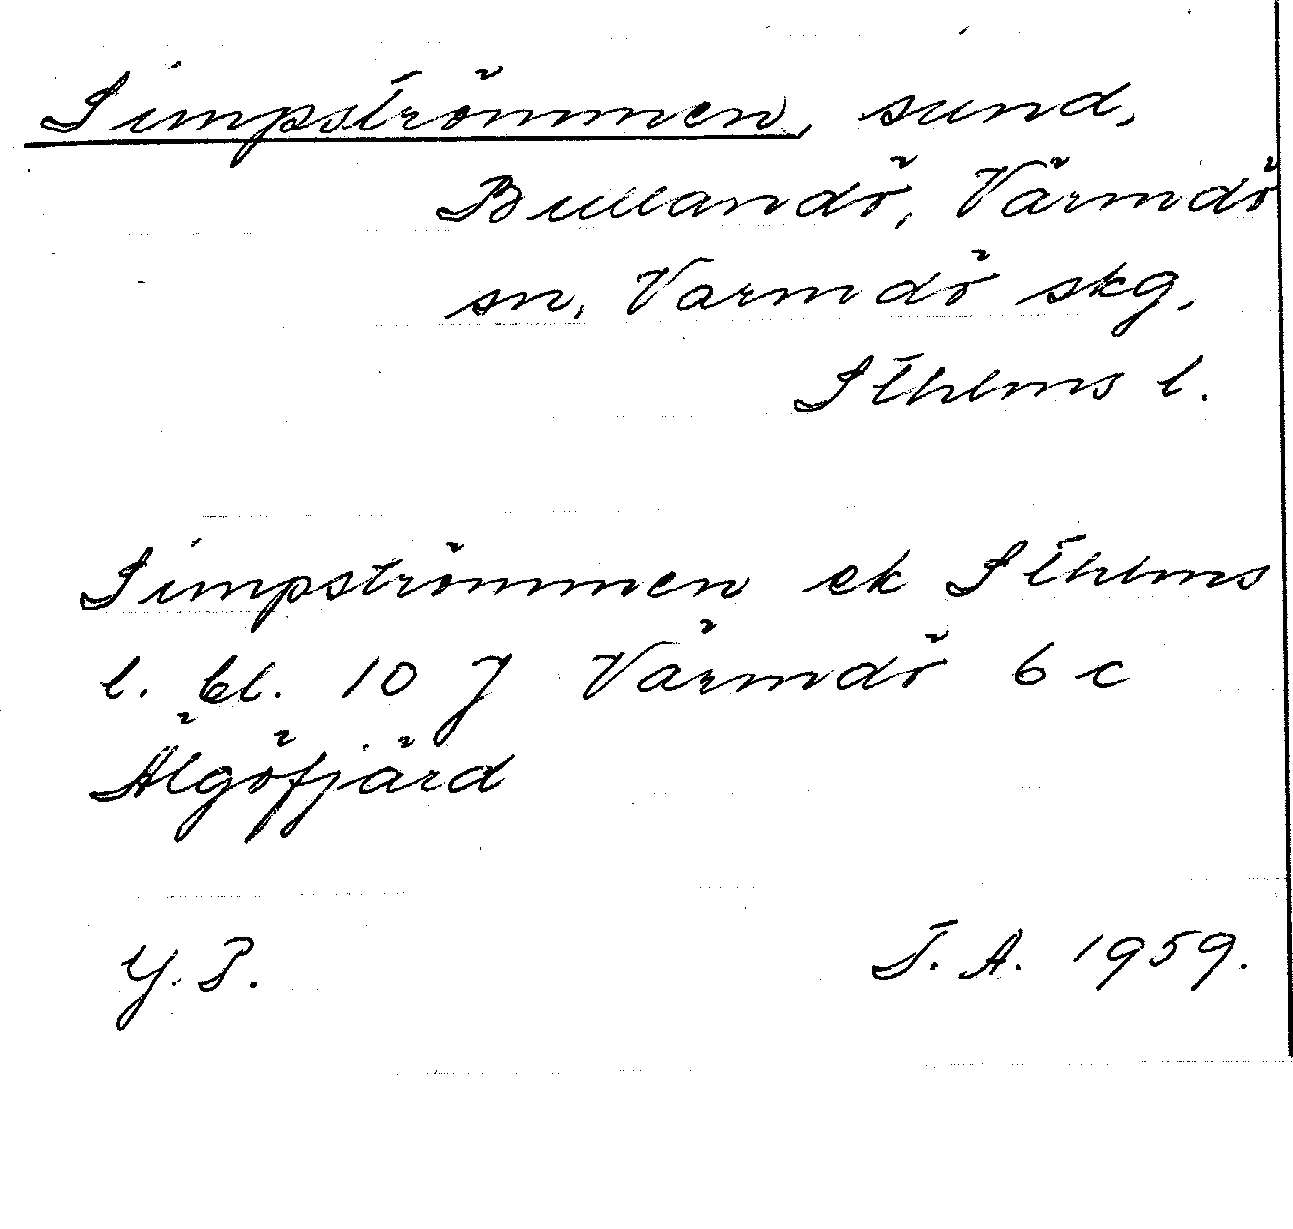 Simpströmmen, sund,
Bullandö, Värmdö
sn, Värmdö skg,
Sthlms l.
Simpströmmen ek Sthlms
l. bl. 10 J Värmdö 6 c
Älgöfjärd
Y. P. T. A. 1959.